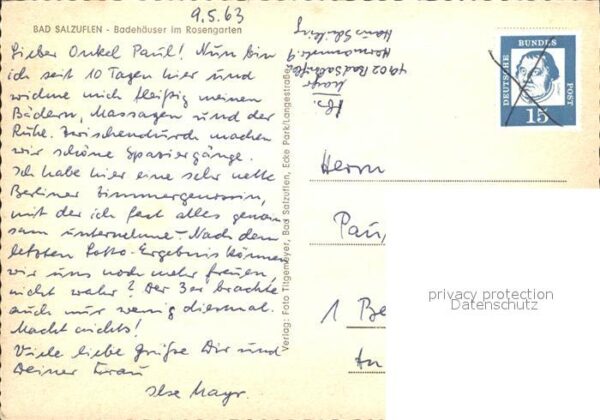 9.5.63
BAD SALZUFLEN - Badehäuser im Rosengarten
Lieber Onkel Paul! Nun bin
ich seit 10 Tagen hier und
widme mich fleißig meinen
Bädern, Massagen und der
Ruhe. Zwischendurch machen
wir schöne Spaziergänge.
Ich habe hier eine sehr nette
Berliner Zimmergenossin,
mit der ich fast alles gemein
sam unternehme. Nach dem
letzten Lotto-Ergebnis können
wir uns noch mehr freuen,
nicht wahr? Der 3er brachte
auch nur wenig diesmal.
Macht nichts!
Viele liebe Grüße Dir und
Deiner Frau
Ilse Mayr.
Verlag: Foto Titgemeyer, Bad Salzuflen, Ecke Park/Langestraße
Abs.
Mayr
4902 Bad Salzuflen
Hermannstr. 9
Haus
DEUTSCHE
BUNDES
POST
15
Herrn
Pau
1 Be
An
privacy protection
Datenschutz